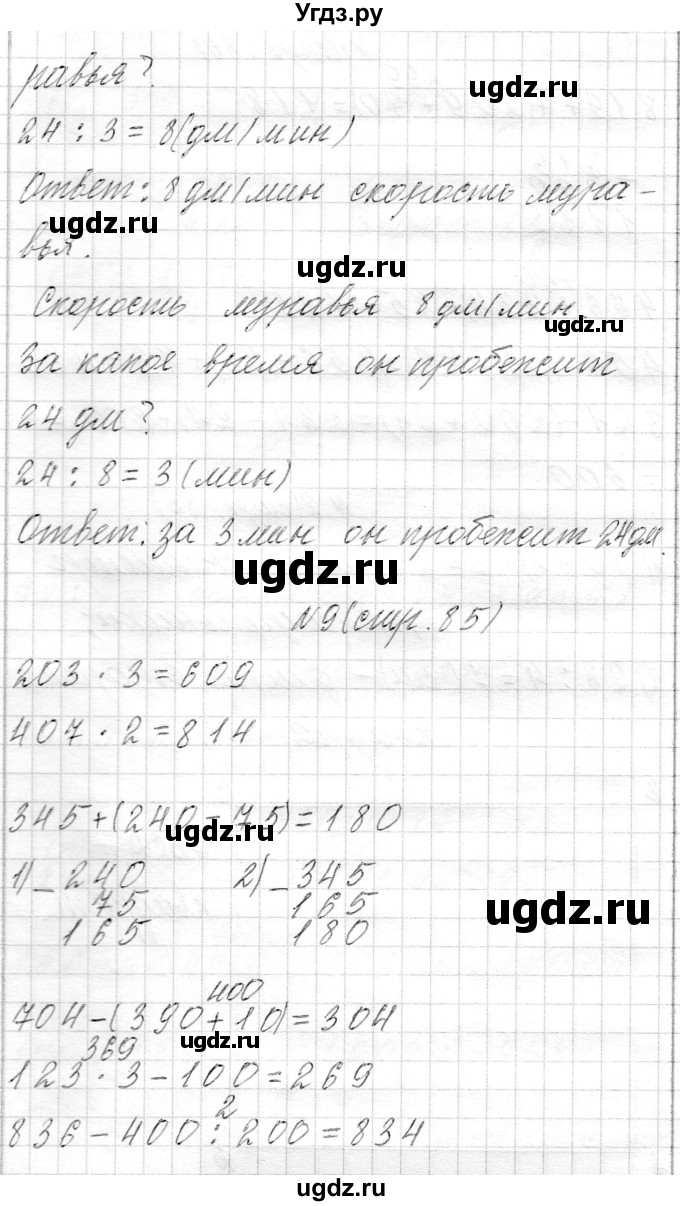 Угдз.ру
равья?
ugdz.ru
24 : 3 = 8(дм/мин)
Ответ: 8 дм/мин скорость мура-
ugdz.ru
вья.
ugdz.ru
Скорость муравья 8 дм/мин
ugdz.ru
За какое время он пробежит
24 дм?
24 : 8 = 3 (мин)
Ответ: за 3 мин он пробежит 24 дм.
ugdz.ru
№9(стр. 85)
203 · 3 = 609
407 · 2 = 814
345+(240-75)=180
ugdz.ru
1) - 240 2) - 345
75 165
165 180
ugdz.ru
400
704-(390+10)=304
ugdz.ru
369
123 · 3 - 100 = 269
2
836 - 400 : 200 = 834
ugdz.ru
ugdz.ru